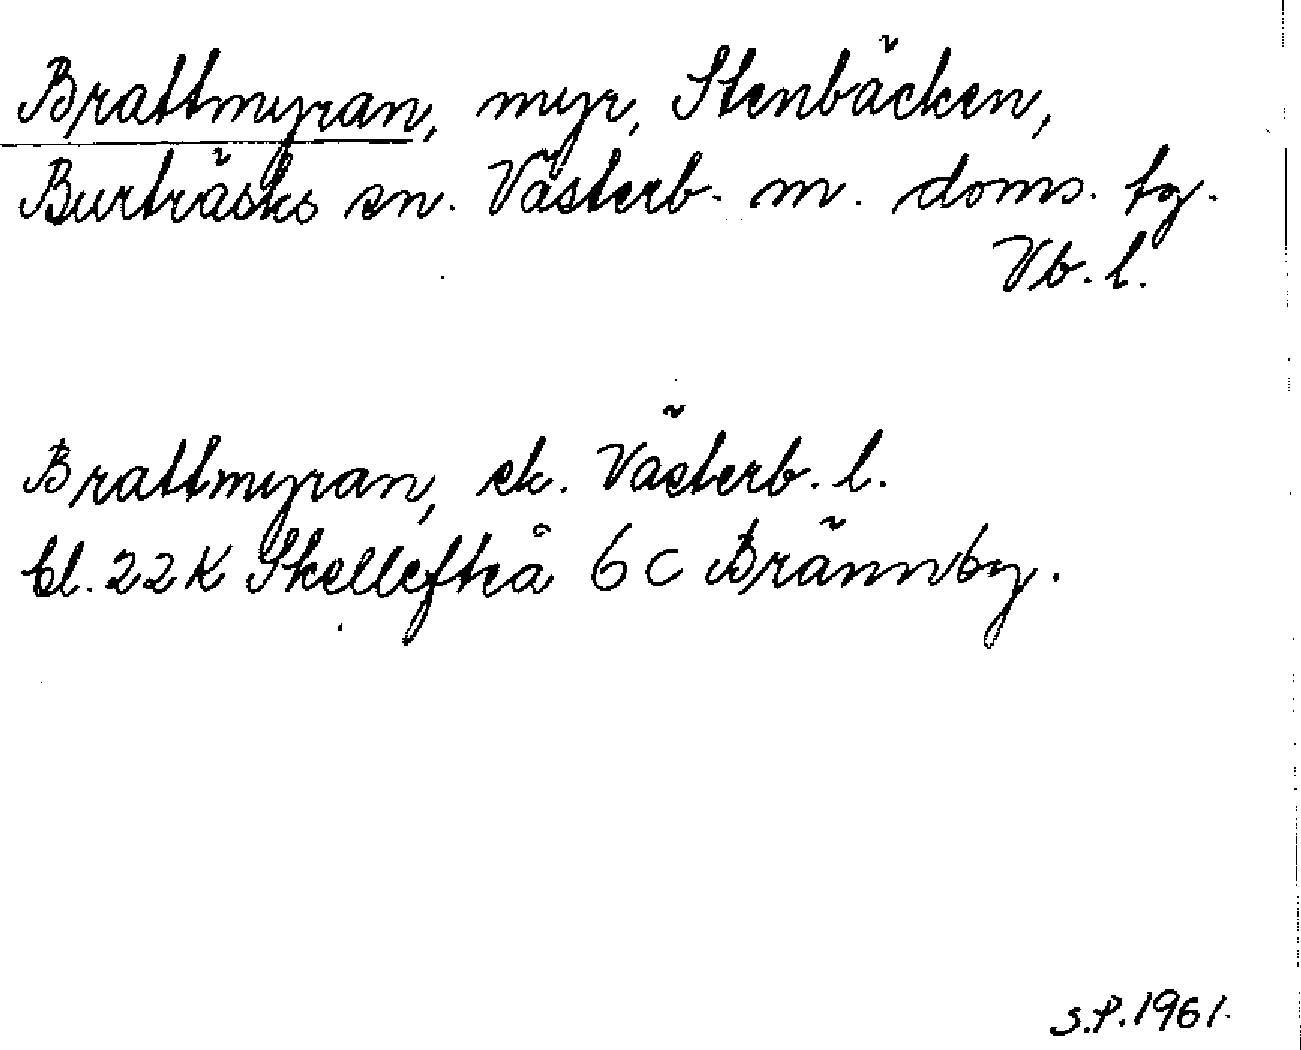 Brattmyran, myr, Stenbäcken,
Burträsks sn. Västerb. m. doms. tg.
Vb. l.
Brattmyran, ek. Västerb. l.
bl. 22K Skellefteå 6 C Brännby.
S.P. 1961.